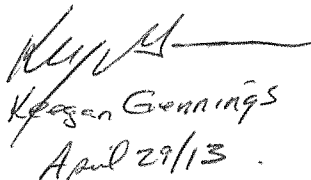 Keegan Gennings
April 29/13.